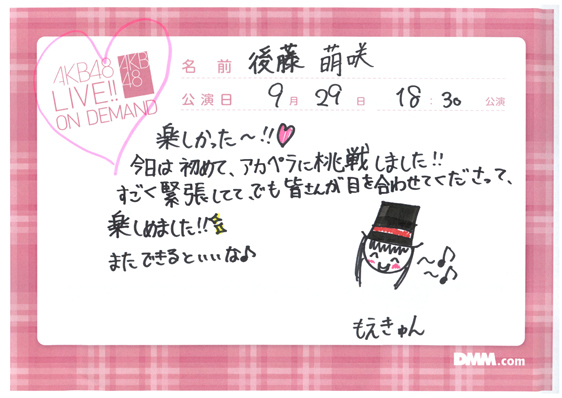 AKB48
LIVE!!
ON DEMAND
AKB
48
名前 後藤 萌咲
公演日 9月29日 18:30 公演
楽しかった〜!!
今日は初めて、アカペラに挑戦しました!!
すごく緊張してて、でも皆さんが目を合わせてくださって、
楽しめました!!
またできるといいな♪
もえきゅん
DMM.com